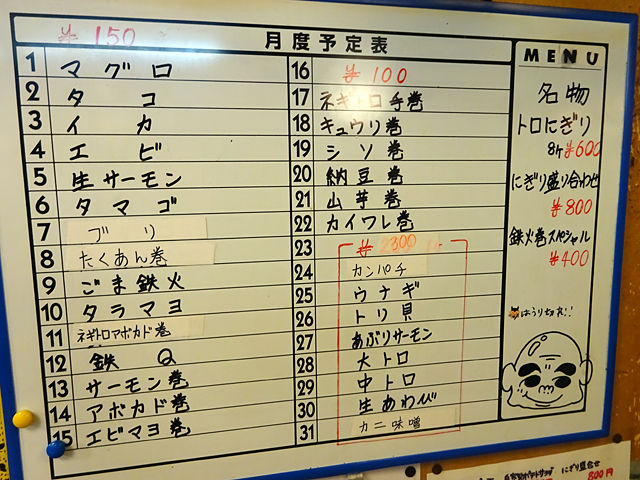 ¥150
月度予定表
1 マグロ
2 タコ
3 イカ
4 エビ
5 生サーモン
6 タマゴ
7 ブリ
8 たくあん巻
9 ごま鉄火
10 タラマヨ
11 ネギトロアボカド巻
12 鉄Q
13 サーモン巻
14 アボカド巻
15 エビマヨ巻
16 ¥100
17 ネギトロ手巻
18 キュウリ巻
19 シソ巻
20 納豆巻
21 山芋巻
22 カイワレ巻
23 ¥2300
24 カンパチ
25 ウナギ
26 トリ貝
27 あぶりサーモン
28 大トロ
29 中トロ
30 生あわび
31 カニ味噌
MENU
名物
トロにぎり
8ヶ¥600
にぎり盛り合わせ
¥800
鉄火巻スペシャル
¥400
にぎり盛合せ
800円